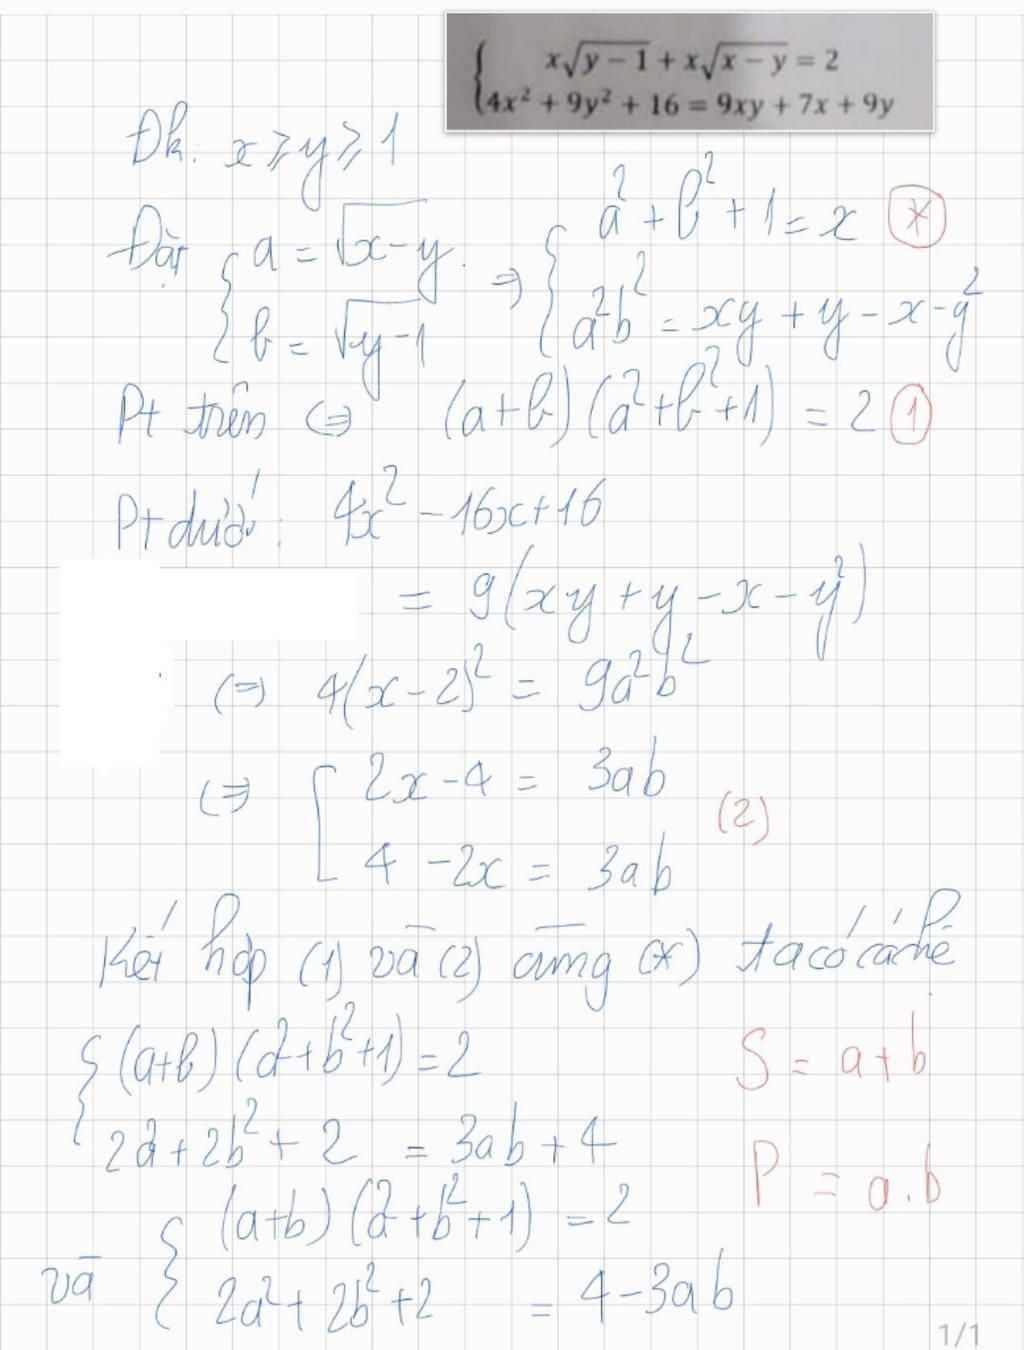 x√(y − 1) + x√(x − y) = 2
4x² + 9y² + 16 = 9xy + 7x + 9y
Đk: x ⩾ y ⩾ 1
Đặt { a = √(x − y) ⇒ { a² + b² + 1 = x (*)
b = √(y − 1) a²b² = xy + y − x − y²
Pt trên ⇔ (a+b)(a²+b²+1) = 2 (1)
Pt dưới: 4x² − 16x + 16
= 9(xy + y − x − y²)
⇔ 4(x − 2)² = 9a²b²
⇔ [ 2x − 4 = 3ab
4 − 2x = 3ab (2)
Kết hợp (1) và (2) cùng (*) ta có các hệ
{ (a+b)(a²+b²+1) = 2
2a² + 2b² + 2 = 3ab + 4
S = a + b
P = a.b
và { (a+b)(a²+b²+1) = 2
2a² + 2b² + 2 = 4 − 3ab
1/1